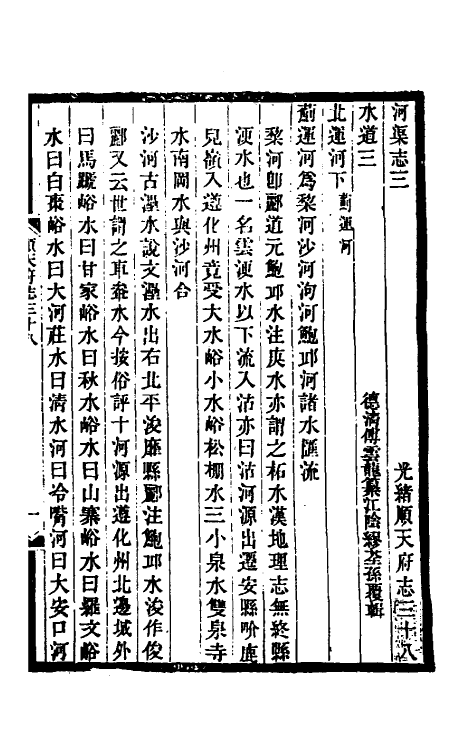 河渠志三
光緒順天府志三十八
水道三
德清傅雲龍纂江陰繆荃孫覆輯
北運河下 薊運河
薊運河爲黎河沙河泃河鮑邱河諸水匯流
黎河卽酈道元鮑邱水注庚水亦謂之柘水漢地理志無終縣
浭水也一名雲浭水以下流入沽亦曰沽河源出遷安縣吩
兒嶺入遵化州竟受大水峪小水峪松棚水三小泉水雙泉寺
水南岡水與沙河合
沙河古灅水說文灅水出右北平浚靡縣酈注鮑邱水浚作俊
酈又云世謂之車軬水今按俗評十河源出遵化州北邊城外
曰馬蹏峪水曰甘家峪水曰秋水峪水曰山寨峪水曰羅文峪
水曰白棗峪水曰大河莊水曰清水河曰冷嘴河曰大安口河
順天府志三十八
一